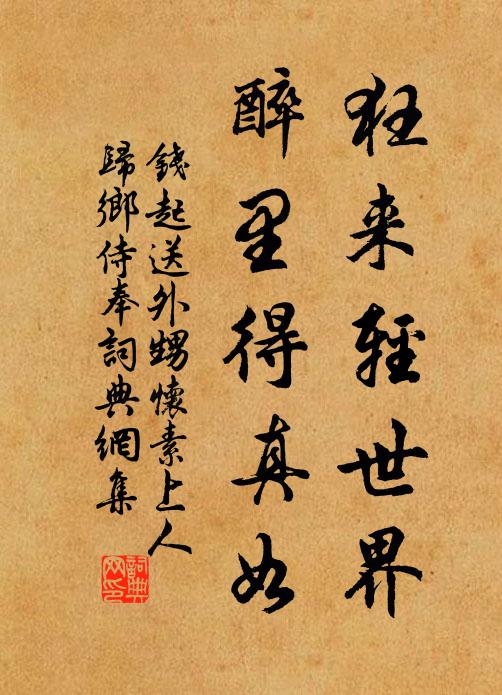 狂来輕世界
醉里得真如
錢起送外甥懷素上人
歸鄉侍奉詞典網集
詞典网印